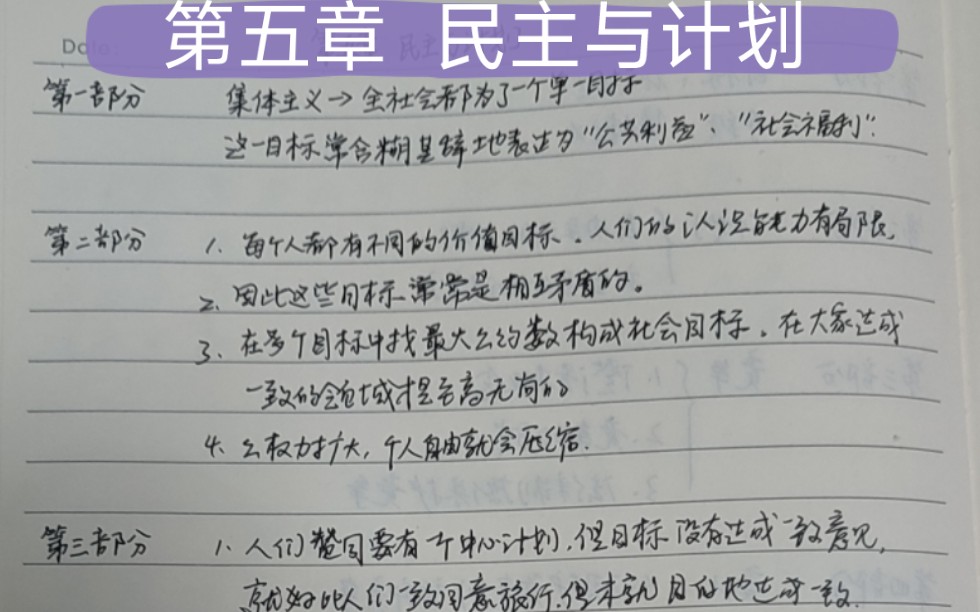 第五章 民主与计划
Date:
第一部分 集体主义→全社会都为了一个单一目标
这一目标常含糊其辞地表达为“公共利益”、“社会福利”.
第二部分 1. 每个人都有不同的价值目标。人们的认识能力有局限,
2. 因此这些目标常常是相互矛盾的。
3. 在多个目标中找最大公约数构成社会目标。在大家达成
一致的领域才是至高无尚的
4. 公权力扩大,个人自由就会压缩.
第三部分 1. 人们赞同要有一个中心计划,但目标没有达成一致意见,
就好比人们一致同意旅行,但未就目的地达成一致.